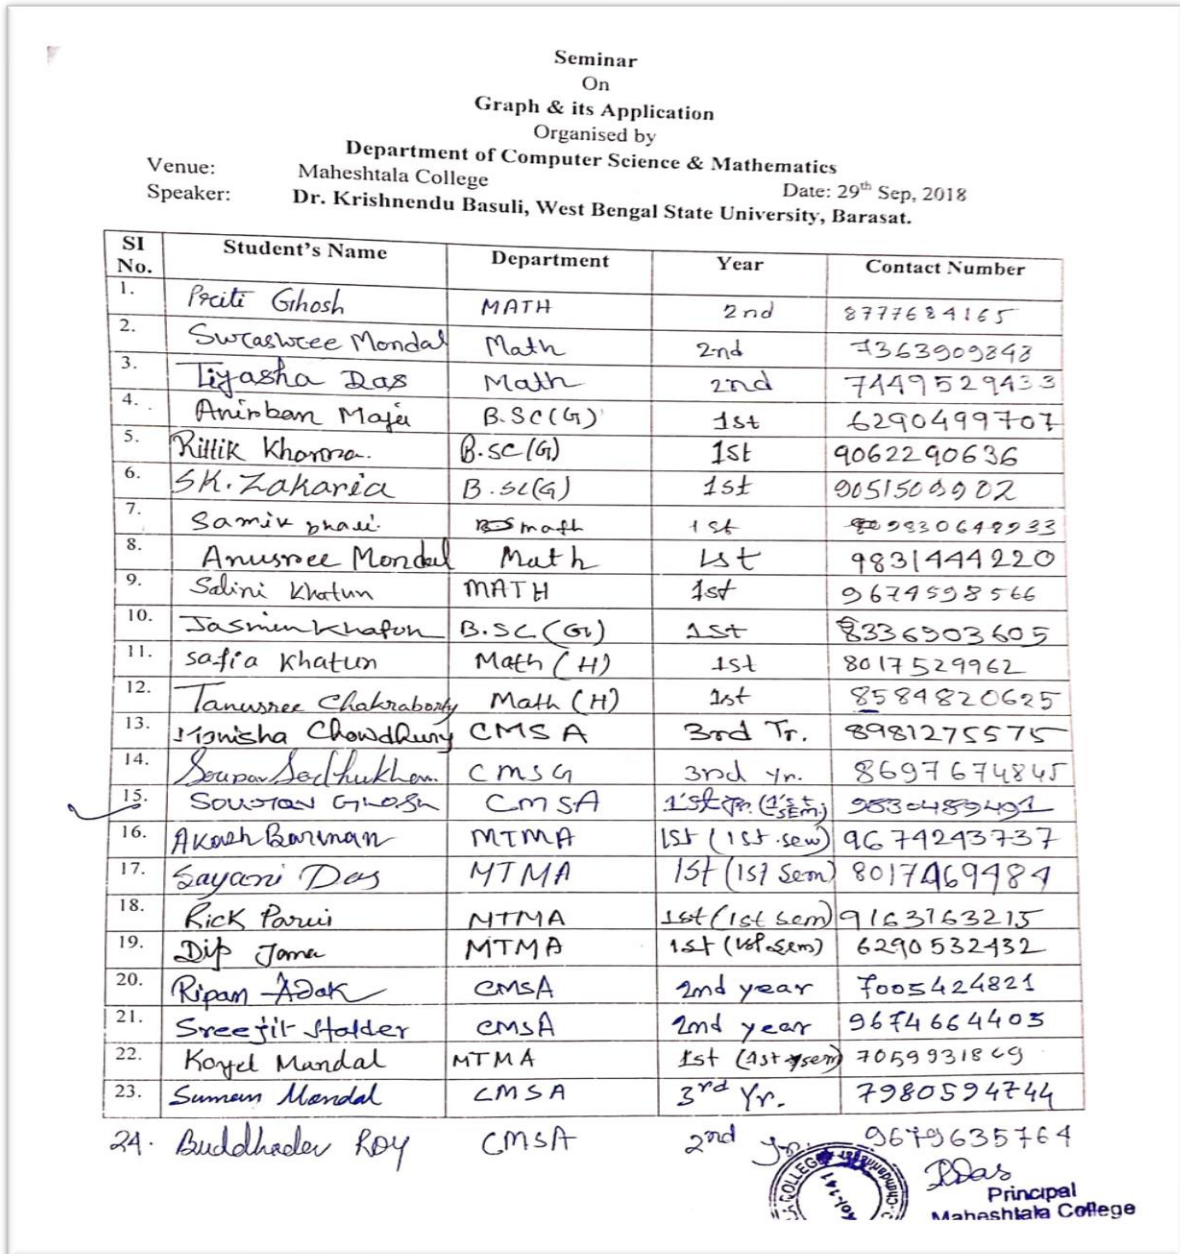 Seminar
On
Graph & its Application
Organised by
Department of Computer Science & Mathematics
Venue: Maheshtala College Date: 29th Sep, 2018
Speaker: Dr. Krishnendu Basuli, West Bengal State University, Barasat.
SI No. Student's Name Department Year Contact Number
1. Priti Ghosh MATH 2nd 8777684165
2. Swrashree Mondal Math 2nd 7363909848
3. Tiyasha Das Math 2nd 7449529433
4. Anirban Maji B.SC(G) 1st 6290499707
5. Rittik Khanra. B.SC(G) 1st 9062290636
6. SK. Zakaria B.SC(G) 1st 9051509902
7. Samik math 1st
8. Anusree Mondal Math 1st 9831444220
9. Salini Khatun MATH 1st 9674598566
10. Jasmin Khatun B.SC(G) 1st 8336903605
11. Safia Khatun Math (H) 1st 8017529962
12. Tanusree Chakraborty Math (H) 1st 8584820625
13. Monisha Chowdhury CMSA 3rd Yr. 8981275575
14. Sadhukhan. CMSG 3rd yr. 8697674845
15. SOUVAN GHOSH CMSA 1st yr. (1st SEM)
16. Akash Barman MTMA 1st (1st sem) 9674243737
17. Sayani Das MTMA 1st (1st Sem) 8017469484
18. Rick Parui MTMA 1st (1st sem) 9163763215
19. Dip Jana MTMA 1st (1st sem) 6290532432
20. Ripan Adak CMSA 2nd year 7005424821
21. Sreejit Halder CMSA 2nd year 9674664405
22. Koyel Mandal MTMA 1st (1st sem) 7059931869
23. Suman Mandal CMSA 3rd Yr. 7980594744
24. Buddhadev Roy CMSA 2nd Yr. 9679635764
Principal
Maheshtala College